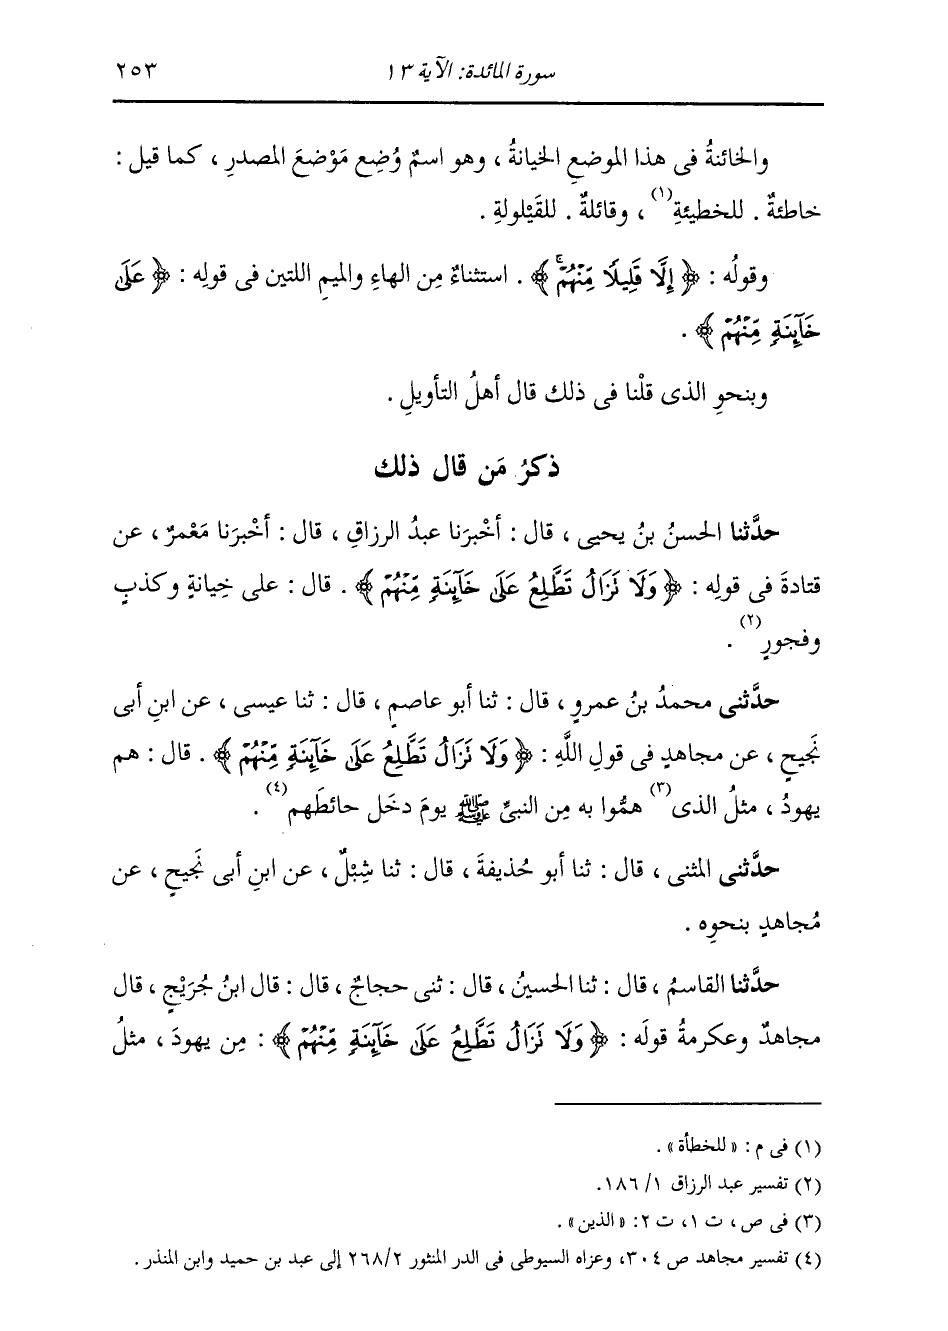 سورة المائدة: الآية ١٣
٢٥٣
والخائنةُ فى هذا الموضعِ الخيانةُ ، وهو اسمٌ وُضِع مَوْضعَ المصدرِ ، كما قيل :
خاطئةٌ . للخطيئةِ(١) ، وقائلةٌ . للقَيْلولةِ .
وقولُه : ﴿ إِلَّا قَلِيلًا مِّنْهُمْۖ ﴾ . استثناءٌ مِن الهاءِ والميمِ اللتين فى قولِه : ﴿ عَلَىٰ
خَآئِنَةٍ مِّنْهُمْ ﴾ .
وبنحوِ الذى قلْنا فى ذلك قال أهلُ التأويلِ .
ذكرُ مَن قال ذلك
حدَّثنا الحسنُ بنُ يحيى ، قال : أخْبرَنا عبدُ الرزاقِ ، قال : أخْبرَنا مَعْمرٌ ، عن
قتادةَ فى قولِه : ﴿ وَلَا نَزَالُ تَطَّلِعُ عَلَىٰ خَآئِنَةٍ مِّنْهُمْ ﴾ . قال : على خِيانةٍ وكذبٍ
وفجورٍ(٢) .
حدَّثنى محمدُ بنُ عمرٍو ، قال : ثنا أبو عاصمٍ ، قال : ثنا عيسى ، عن ابنِ أبى
نَجيحٍ ، عن مجاهدٍ فى قولِ اللَّهِ : ﴿ وَلَا نَزَالُ تَطَّلِعُ عَلَىٰ خَآئِنَةٍ مِّنْهُمْ ﴾ . قال : هم
يهودُ ، مثلُ الذى(٣) همُّوا به مِن النبىِّ ﷺ يومَ دخَل حائطَهم(٤) .
حدَّثنى المثنى ، قال : ثنا أبو حُذيفةَ ، قال : ثنا شِبْلٌ ، عن ابنِ أبى نَجيحٍ ، عن
مُجاهدٍ بنحوِه .
حدَّثنا القاسمُ ، قال : ثنا الحسينُ ، قال : ثنى حجاجٌ ، قال : قال ابنُ جُرَيْجٍ ، قال
مجاهدٌ وعكرمةُ قولَه : ﴿ وَلَا نَزَالُ تَطَّلِعُ عَلَىٰ خَآئِنَةٍ مِّنْهُمْ ﴾ : مِن يهودَ ، مثلُ
(١) فى م : « للخطأة » .
(٢) تفسير عبد الرزاق ١/ ١٨٦.
(٣) فى ص ، ت ١، ت ٢: « الذين » .
(٤) تفسير مجاهد ص ٣٠٤، وعزاه السيوطى فى الدر المنثور ٢/ ٢٦٨ إلى عبد بن حميد وابن المنذر .